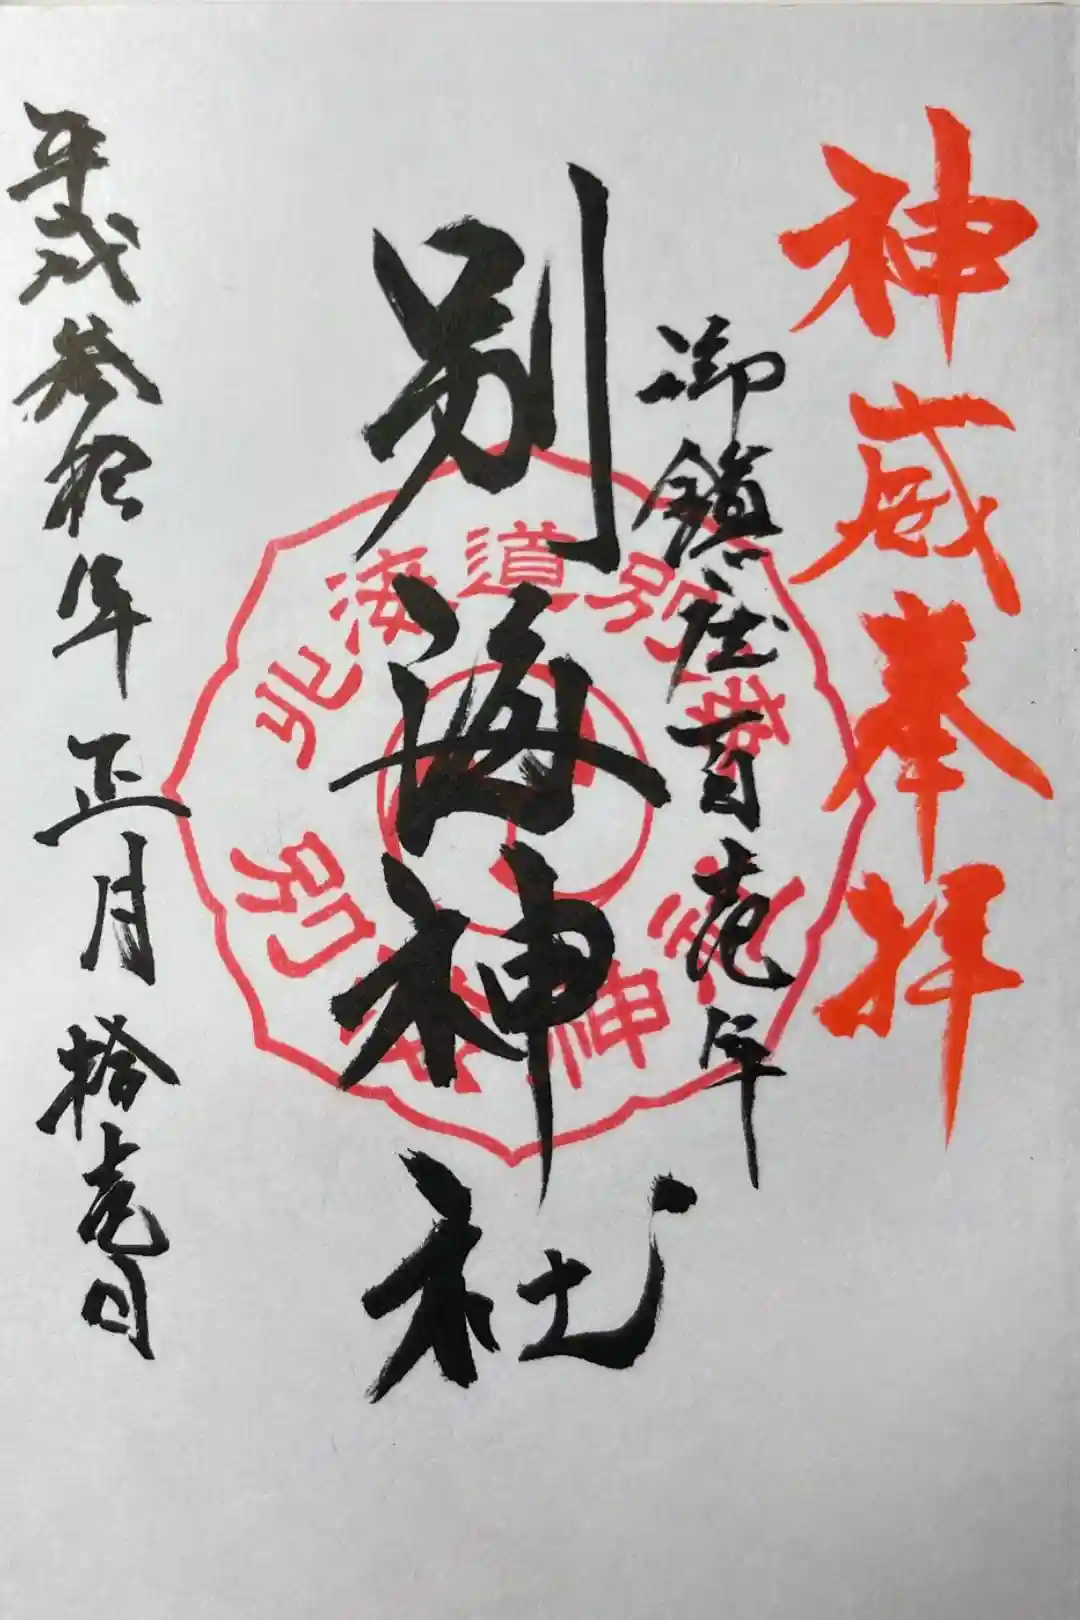 神威奉拝
御鎮座百壱年
別海神社
平成参拾年正月拾壱日
北海道別海
別海神社